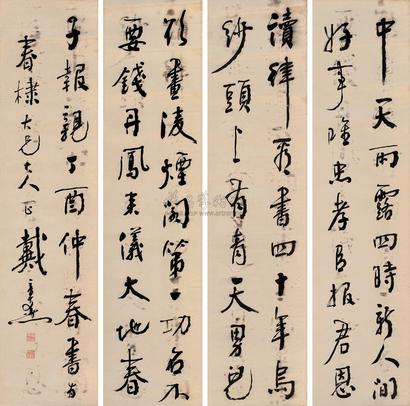 中天雨露四時新人間
好事唯忠孝臣報君恩
讀律看書四十年烏
紗頭上有青天男兒
欲畫凌煙閣第一功名不
要錢丹鳳來儀大地春
子報親丁酉仲春書為
春棣大兄大人正戴熙